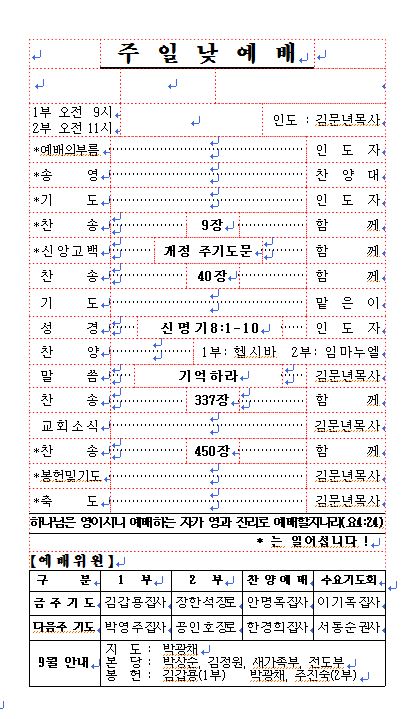 주 일 낮 예 배
1부 오전 9시
2부 오전 11시
인도 : 김문년목사
*예배의부름 인 도 자
*송 영 찬 양 대
*기 도 인 도 자
*찬 송 9장 함 께
*신앙고백 개정 주기도문 함 께
찬 송 40장 함 께
기 도 맡 은 이
성 경 신명기8:1-10 인 도 자
찬 양 1부: 헵시바 2부: 임마누엘
말 씀 기억하라 김문년목사
찬 송 337장 함 께
교회소식 김문년목사
*찬 송 450장 함 께
*봉헌및기도 김문년목사
*축 도 김문년목사
하나님은 영이시니 예배하는 자가 영과 진리로 예배할지니라(요4:24)
* 는 일어섭니다!
[예배위원]
구 분 1 부 2 부 찬양예배 수요기도회
금주기도 김갑용집사 장한석장로 안명옥집사 이기옥집사
다음주 기도 박영주집사 공인호장로 한경희집사 서동순권사
9월 안내
지 도 : 박광채
본 당 : 박상순, 김정원, 새가족부, 전도부
봉 헌 : 김갑용(1부) 박광채, 주진숙(2부)